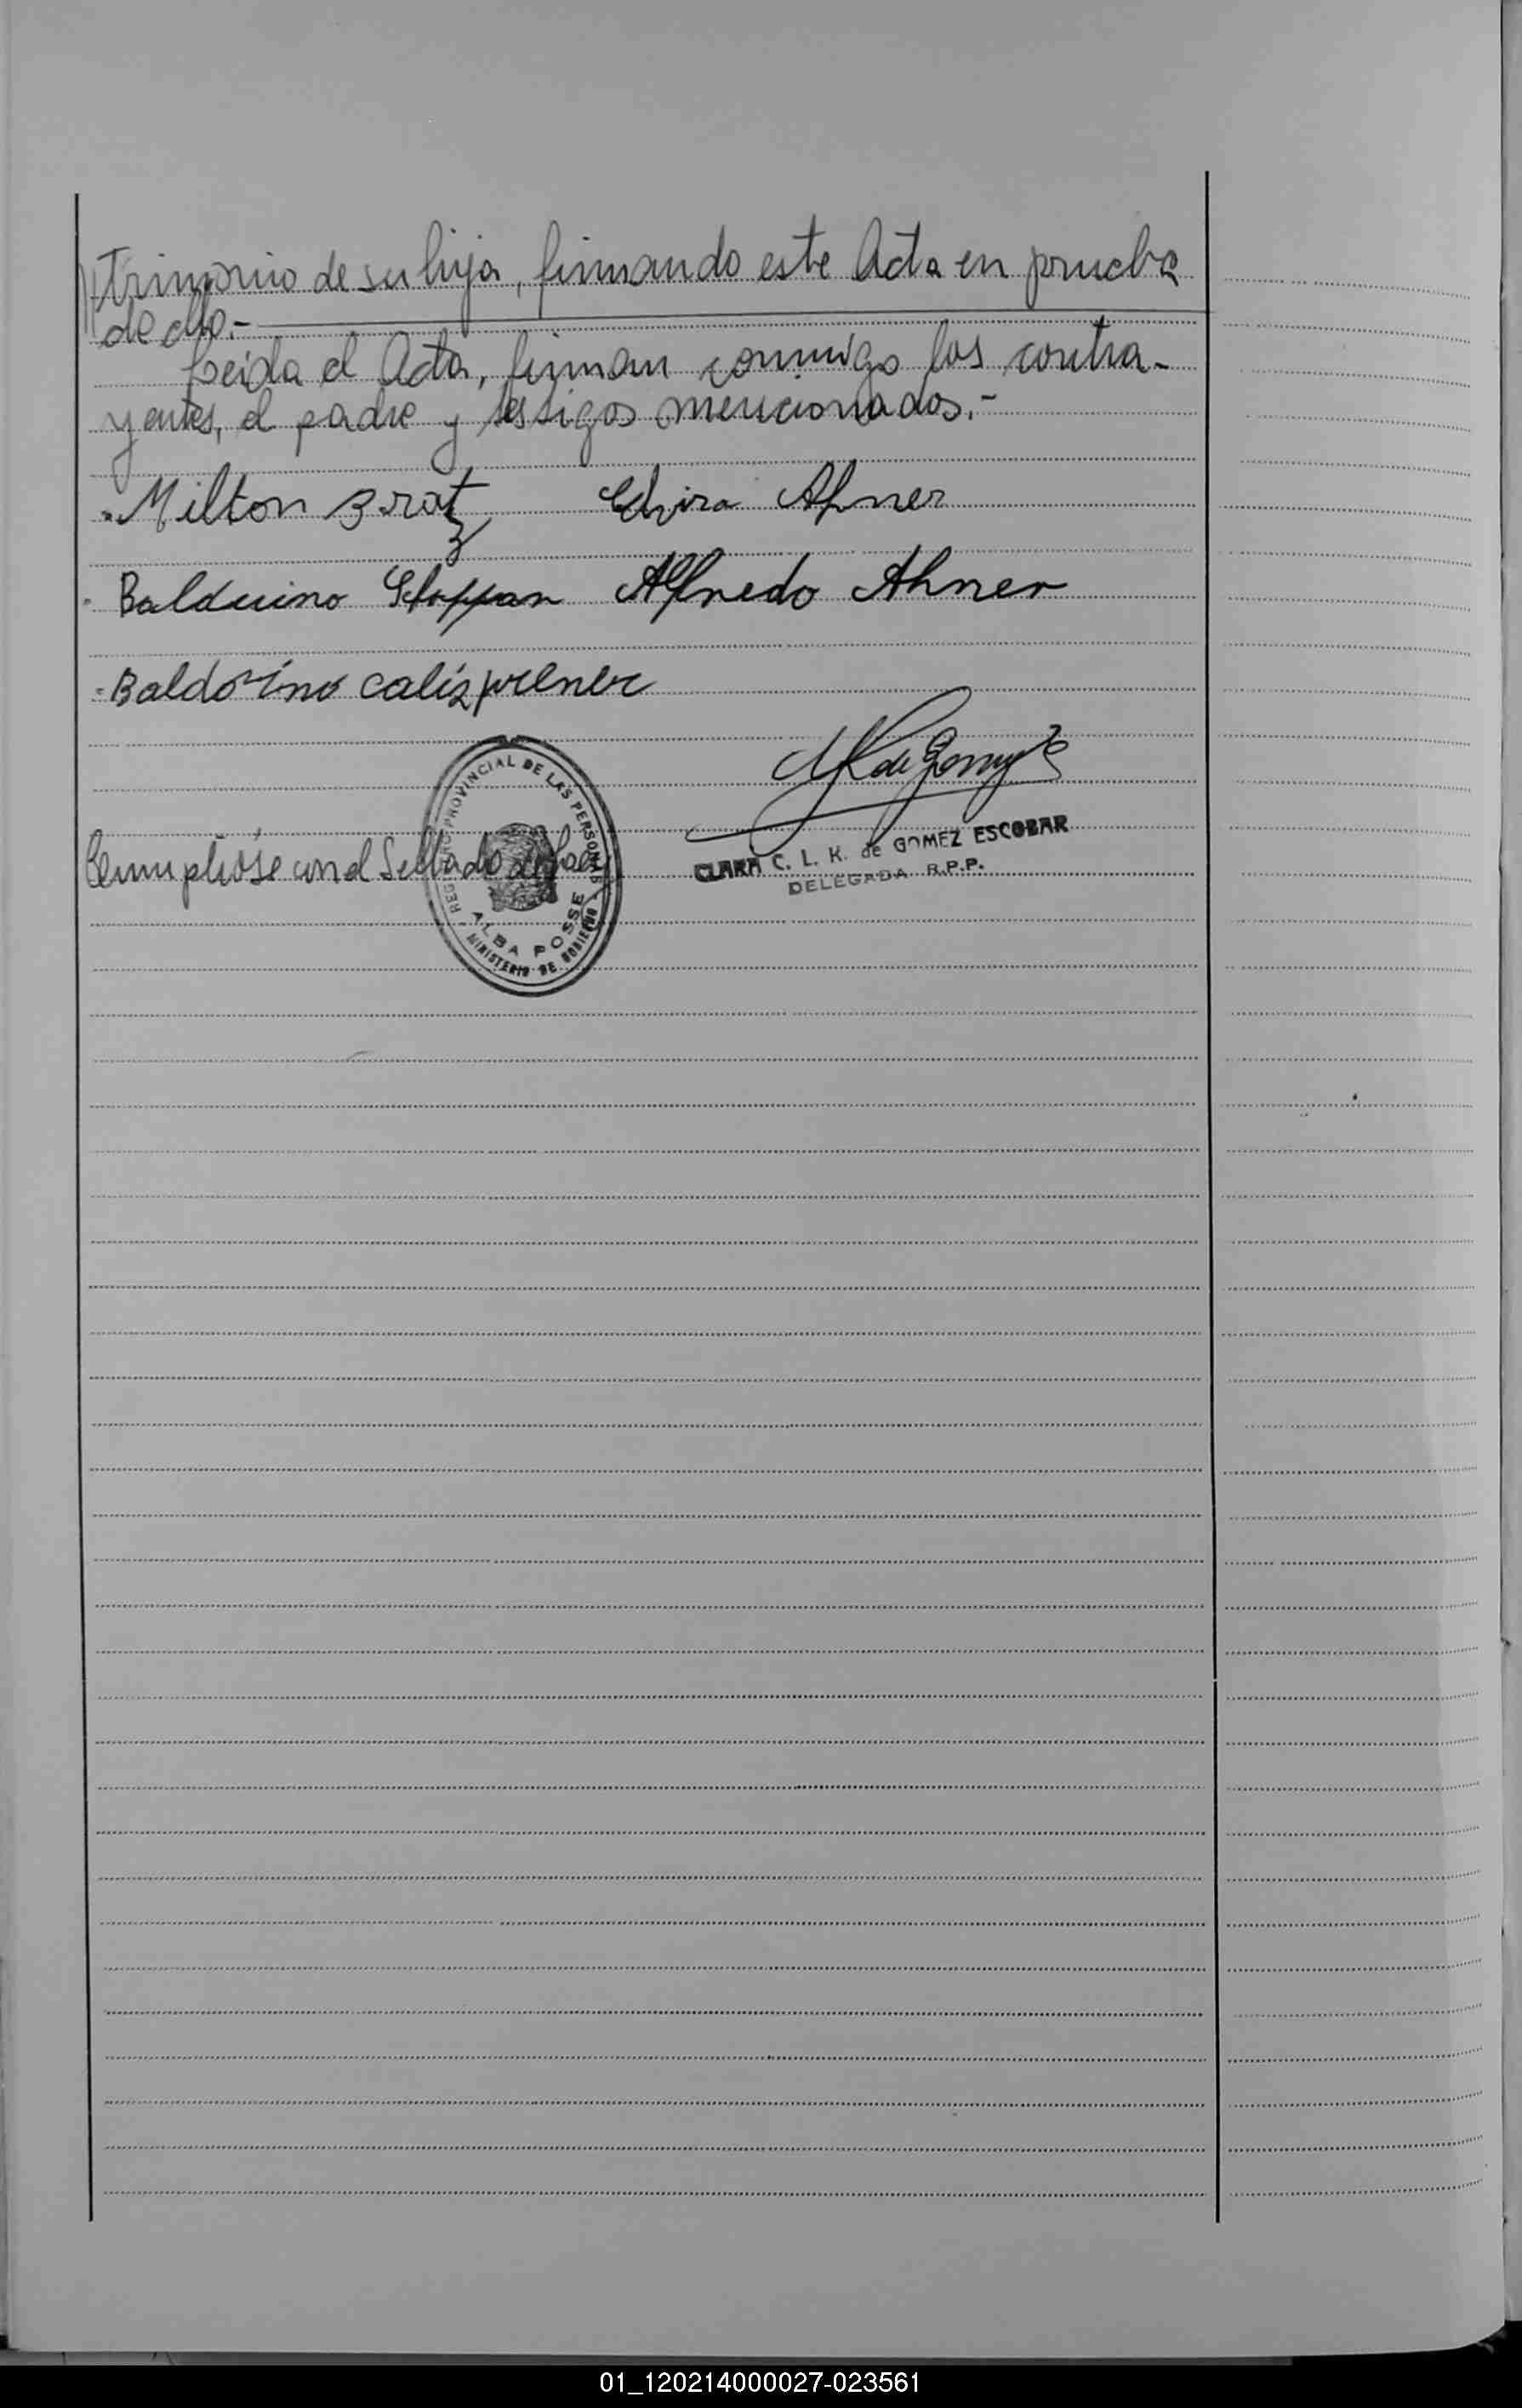 //trimonio de su hija, firmando este Acta en prueba
de ello.-
Leida el Acta, firman conmigo los contra-
yentes, el padre y testigos mencionados.-
Milton Bratz Elvira Ahner
Balduino Alfredo Ahner
Baldoíno
REGISTRO PROVINCIAL DE LAS PERSONAS
ALBA POSSE
MINISTERIO DE GOBIERNO
CLARA C. L. K. de GOMEZ ESCOBAR
DELEGADA R.P.P.
Cumplióse con el Sellado de Ley
01_120214000027-023561